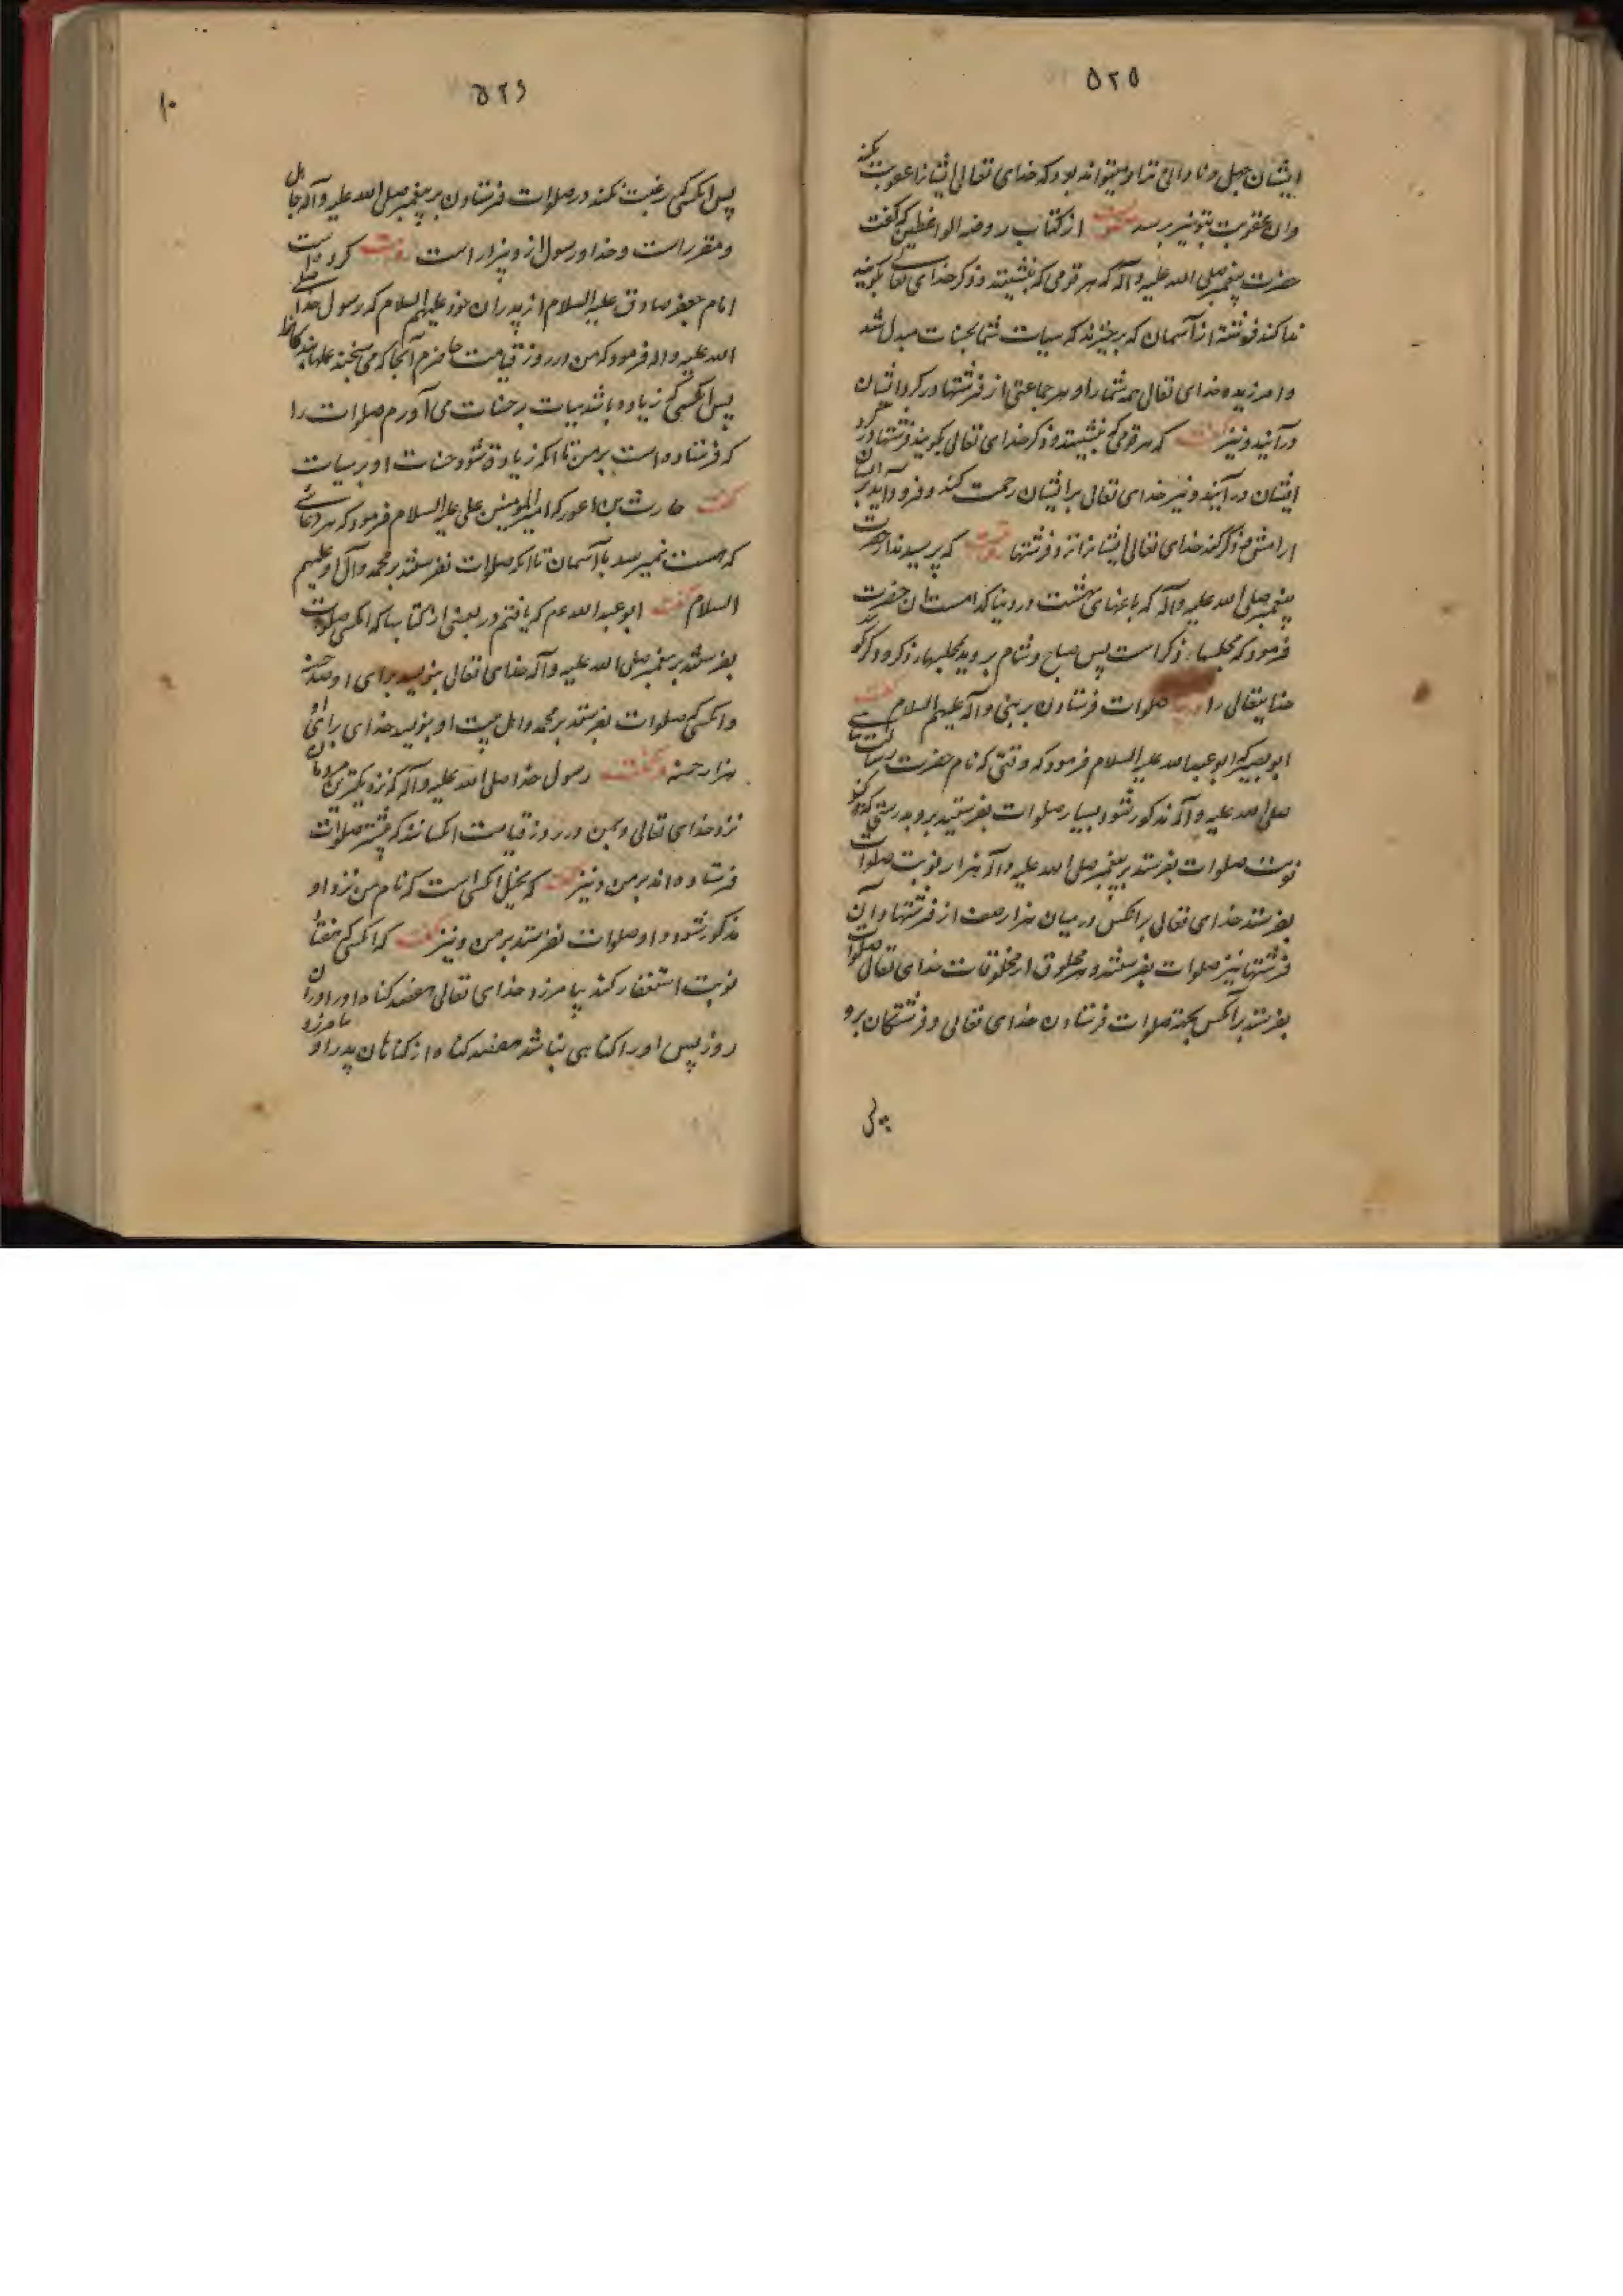 ۵۲۵
ایشان جهل و نادانی ترا و میتواند بود که خدای تعالی ایشانرا عقوبت کند
وان عقوبت بتو نیز برسد از کتاب روضه الواعظین که گفت
حضرت پیغمبر صلی الله علیه و آله که هر قومی که بنشینند و ذکر خدای تعالی بگویند
ندا کند فرشته از آسمان که برخیزید که سیات شما بحسنات مبدل شد
و امرزیده خدای تعالی همه شما را و هر جماعتی از فرشتها در کرد ایشان
درآیند و نیز گفت که هر قومی که بنشینند و ذکر خدای تعالی بگویند فرشتها در کرد
ایشان درآیند و نیز خدای تعالی بر ایشان رحمت کند و فرود آید بر ایشان
ارامش و ذکر کند خدای تعالی ایشانرا نزد فرشتها که پرسیدند از حضرت
پیغمبر صلی الله علیه و آله که باغهای بهشت در دنیا کدامست ان حضرت
فرمود که مجلسهاء ذکر است پس صباح و شام بروید بمجلسهاء ذکر و ذکر کنید
خدایتعالی را صلوات فرستادن بر نبی و آله علیهم السلام گفت
ابو بصیر که ابو عبد الله علیه السلام فرمود که وقتی که نام حضرت رسالت
صلی الله علیه و آله مذکور شود بسیار صلوات بفرستید برو بدرستی که هر که یک
نوبت صلوات بفرستد بر پیغمبر صلی الله علیه و آله هزار نوبت صلوات
بفرستد خدای تعالی بر انکس در میان هزار صف از فرشتها و آن
فرشتها نیز صلوات بفرستند و هر مخلوق از مخلوقات خدای تعالی صلوات
بفرستد بر آنکس بجهة صلوات فرستادن خدای تعالی و فرشتگان برو
پس
۵۲۶
۱۰
پس انکس که رغبت نکند در صلوات فرستادن بر پیغمبر صلی الله علیه و آله جاهل
و مقرر است و خدا و رسول ازو بیزار است روایت کرده است
امام جعفر صادق علیه السلام از پدران خود علیهم السلام که رسول خدا صلی
الله علیه و اله فرمود که من در روز قیامت حاضرم آنجا که می سنجند عملها
پس انکسی که زیاده باشد سیات بر حسنات می آورم صلوات را
که فرستاده است بر من تا انکه زیاده شود حسنات او بر سیات
گفت حارث بن اعور که امیر المومنین علی علیه السلام فرمود که هر دعائی
که هست نمیرسد با آسمان تا انکه صلوات نفرستند بر محمد و آل او علیهم
السلام گفت ابو عبد الله عم که یافتم در بعضی از کتابها که انکس صلوات
بفرستد بر پیغمبر صلی الله علیه و آله خدای تعالی بنویسد برای او صد حسنه
و انکس که صلوات بفرستد بر محمد و اهل بیت او بنویسد خدای برای او
هزار حسنه و گفت رسول خدا صلی الله علیه و آله که نزدیکترین مردمان
نزد خدای تعالی و بمن در روز قیامت انکسانند که بیشتر صلوات
فرستاده اند بر من و نیز گفت که بخیل انکس است که نام من نزد او
مذکور شود و او صلوات نفرستد بر من و نیز گفت که انکس که هفتاد
نوبت استغفار کند بیامرزد خدای تعالی هفتصد کناه او را در ان
روز پس اگر او را کناهی نباشد هفتصد کناه از کناهان پدر او بیامرزد